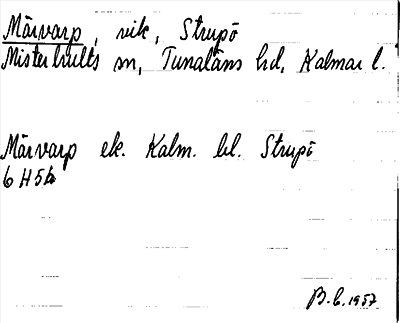 Märvarp, vik, Strupö
Misterhults sn, Tunaläns hd, Kalmar l.
Märvarp ek. Kalm. bl. Strupö
6 H 5b
B.C. 1957